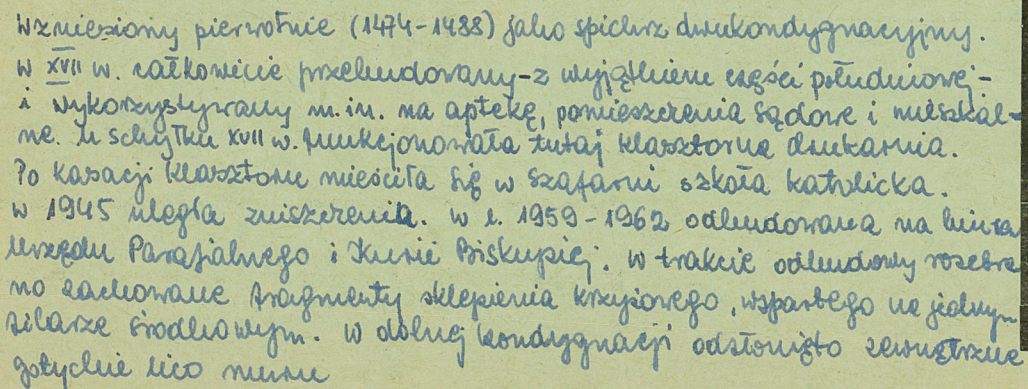 Wzniesiony pierwotnie (1474-1488) jako spichrz dwukondygnacyjny.
w XVII w. całkowicie przebudowany - z wyjątkiem części południowej -
i wykorzystywany m.in. na aptekę, pomieszczenia sądowe i mieszkal-
ne. U schyłku XVII w. funkcjonowała tutaj klasztorna drukarnia.
Po kasacji klasztoru mieściła się w szafarni szkoła katolicka.
w 1945 uległa zniszczeniu. w l. 1959-1962 odbudowana na biura
Urzędu Parafialnego i Kurii Biskupiej. w trakcie odbudowy rozebra
no zachowane fragmenty sklepienia krzyżowego, wspartego na jednym
filarze środkowym. w dolnej kondygnacji odsłonięto zewnętrzne
gotyckie lico muru